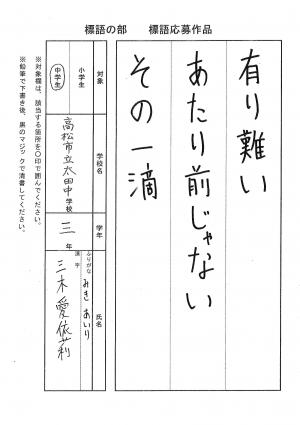 標語の部 標語応募作品
有り難い
あたり前じゃない
その一滴
対象
小学生
中学生
学校名
高松市立太田中学校
学年
三年
氏名
ふりがな
みき あいり
漢字
三木 愛依莉
※対象欄は、該当する箇所を〇印で囲んでください。
※鉛筆で下書き後、黒のマジックで清書してください。